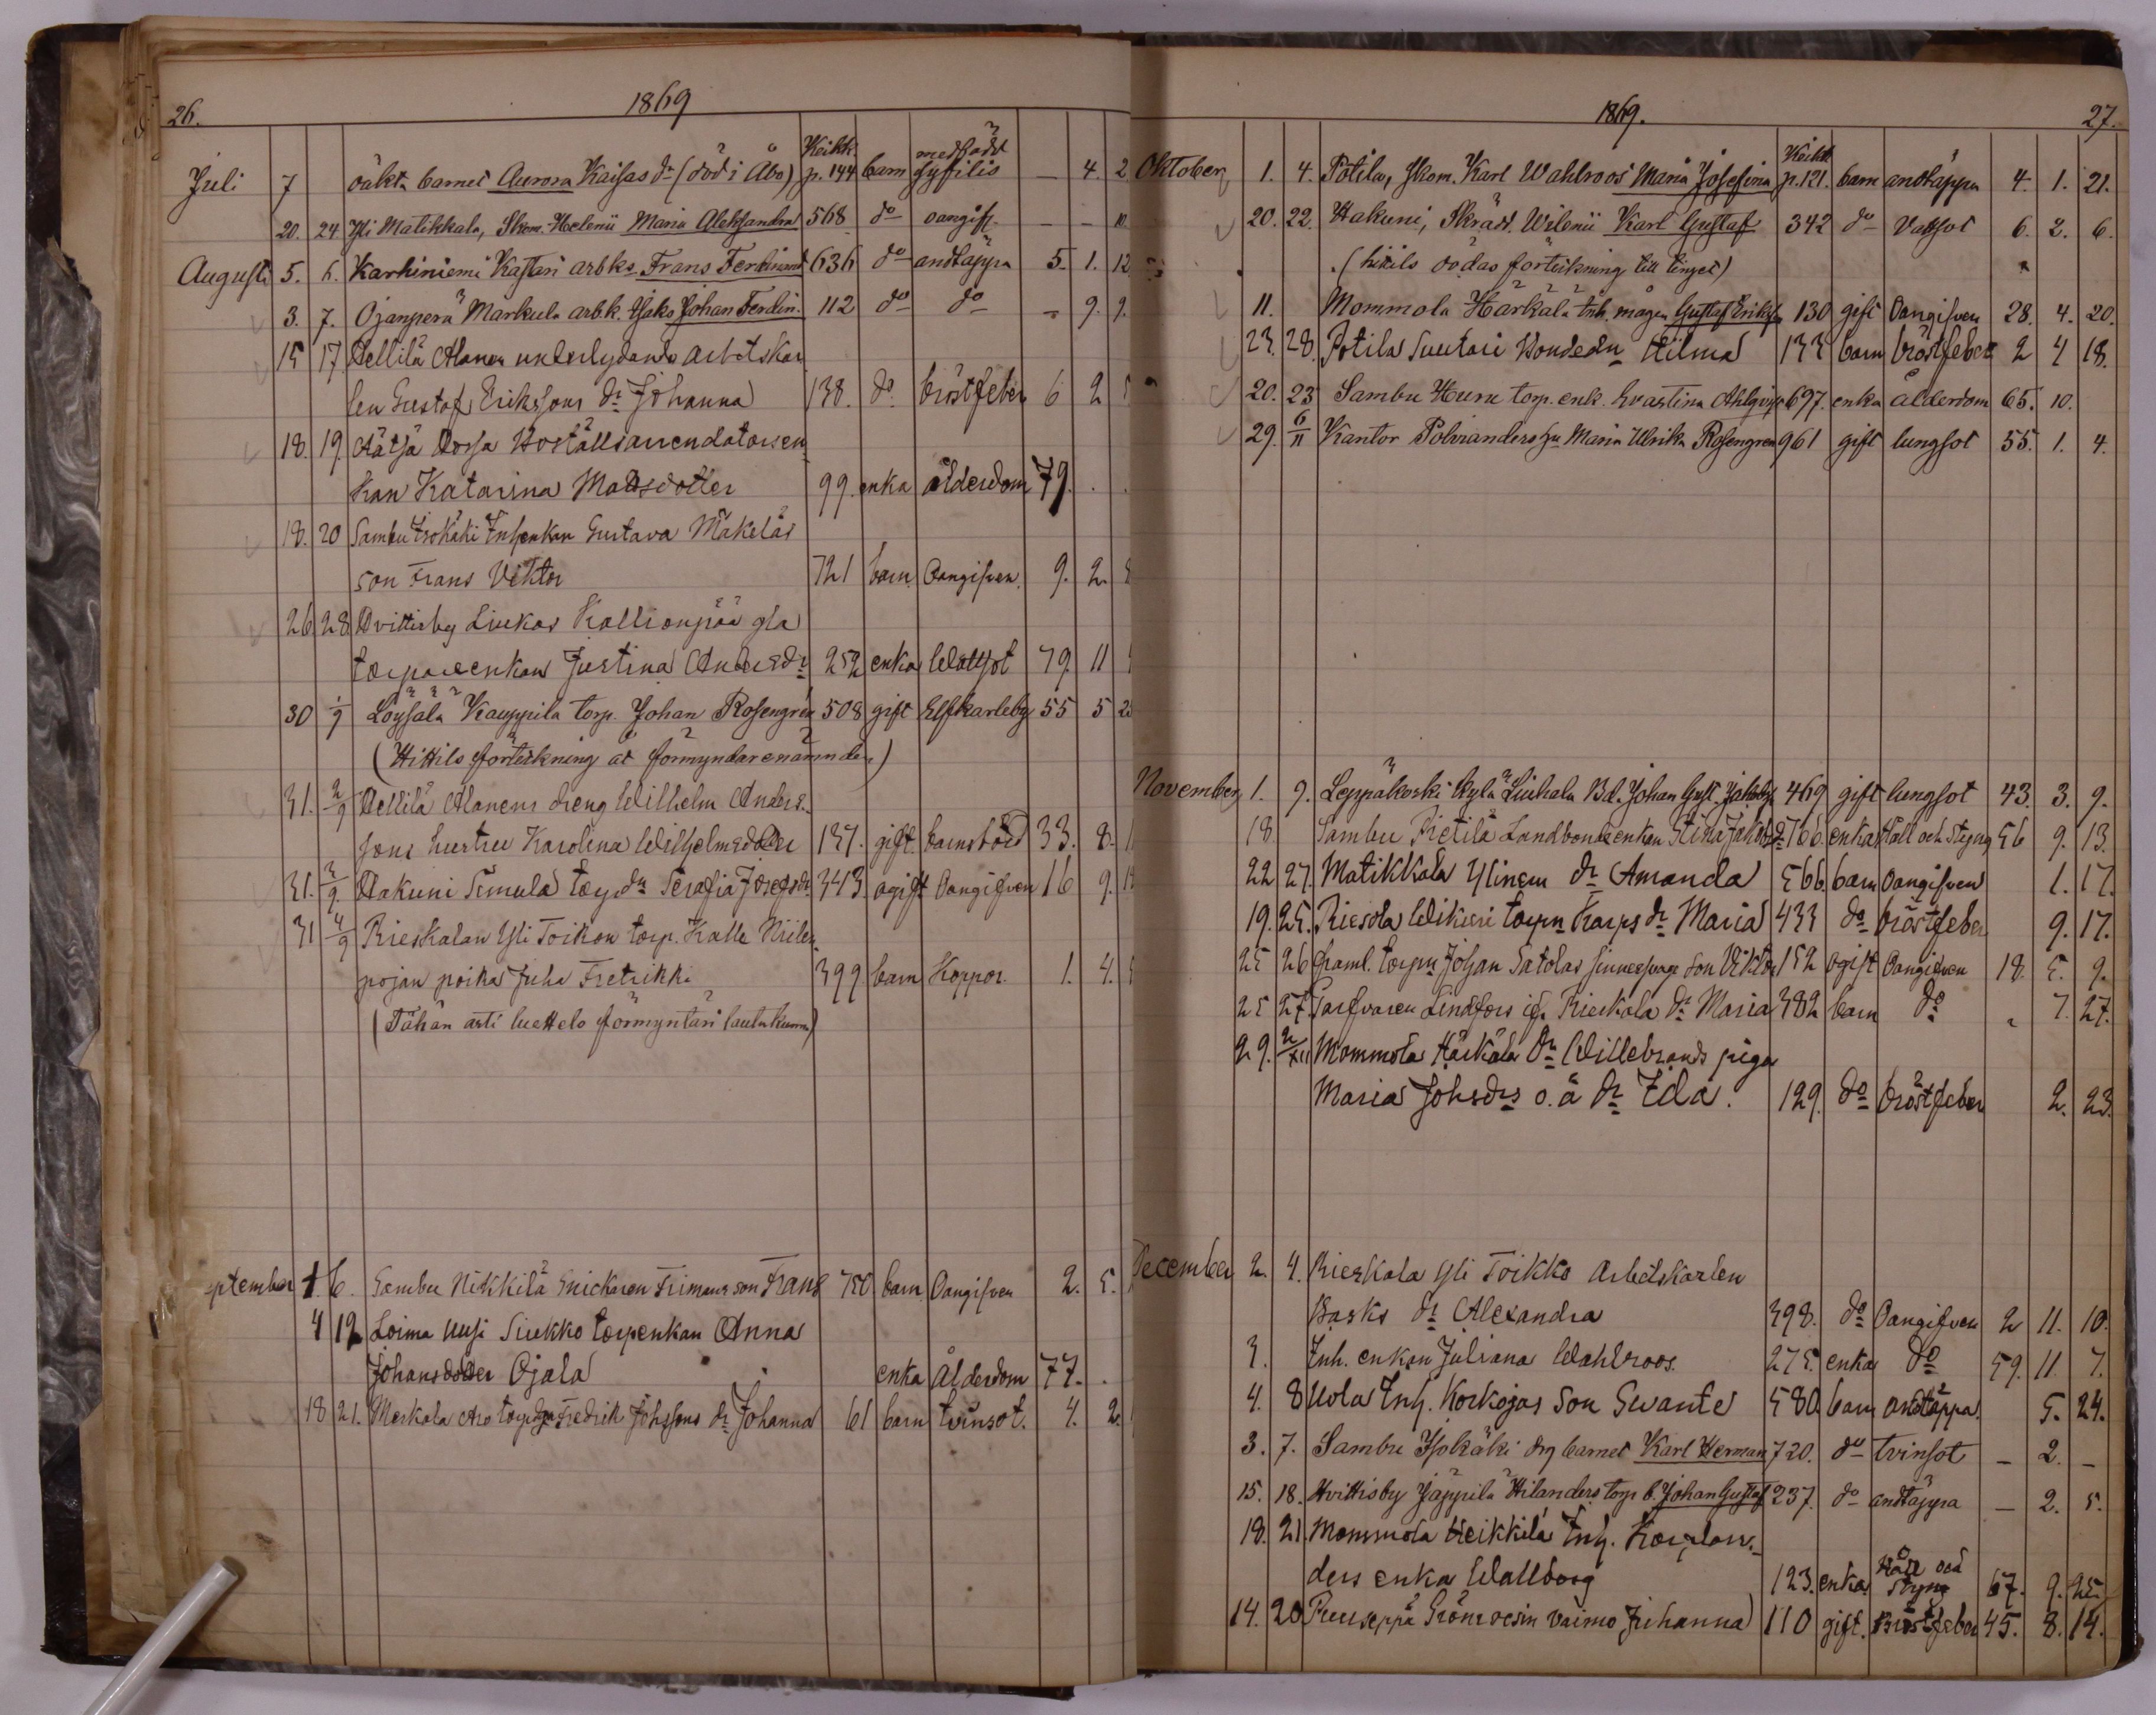 26.
1869
Juli 7 oäkta barnet Aurora Kaisas dr (död i Åbo) Keikk. p. 144 barn medfödd syfilis — 4. 2
20. 24. Yli Matikkala, Skom. Helenii Maria Aleksandra 568 do oangift. — — 10.
Augusti 5. 6. Karhiniemi Kastari arbks. Frans Ferdinand 636 do andtäppa 5. 1. 12
3. 7. Ojanperä Markula arbk. Isaks Johan Ferdin. 112 do do — 9. 9.
15 17 Alanen underlydande Arbetskar
len Gustaf Erikssons dr Johanna 138. do bröstfeber 6 2
18. 19. Boställsarrendatorsen
kan Katarina Matsdotter 99. enka ålderdom 79.
18. 20 Sambu Isokäki Inhsenkan Gustava Mäkeläs
son Frans Viktor 721 barn Oangifven. 9. 2.
26 28 Hvittisby Liukas Kallionpää gla
torpareenkan Justina Andersdr 252 enka Wattsot 79 11
30 1/9 Löysälä Kauppila torp. Johan Rosengren 508 gift Elfkarleby 55 5 2
(Hittils förtekning åt förmyndarenämnden)
31. 2/9 Alanens dreng Wilhelm Anders.
sons hustru Karolina Wilhelmsdotter 137. gift. barnsbörd 33. 8.
31. 3/9. Hakuni Simula torp. dr Serafia Josefsdr. 343. ogift Oangifven 16 9.
31 4/9 Rieskalan Yli Toikon torp. Kalle
pojan poika Juha Fretrikki 399 barn Koppor. 1. 4.
(Tähän asti luettelo förmyntäri lautakunn.)
eptember 1. 6. Sambu Nikkilä Snickaren Frimans son Frans 750 barn Oangifven 2. 5.
4 12 Loima Uusi Siukko torpenkan Anna
Johansdotter Ojala enka Ålderdom 77.
18 21. Maskala Aro Fredrik Johssons dr Johanna 61 barn tvinsot. 4. 2.
1869.
27.
Oktober 1. 4. Potila, Skom. Karl Wahlroos Maria Josefina Keikk. p. 121. barn andtäppa 4. 1. 21.
20. 22. Hakuni, Skrädd. Wilenii Karl Gustaf 342 do Vattsot 6. 2. 6.
(hitils dödas förtekning till tinget)
11. Mommola Härkälä inh. mågen Gustaf Eriksson 130 gift Oangifven 28. 4. 20.
23. 28. Potila Suutari Hilma 133 barn bröstfeber 2 4 18.
20. 23 Sambu Huru torp. enk. Evastina Ahlqvist 697. enka ålderdom 65. 10.
29. 6/11 Kantor Polvianders hu Maria Ulrika Rosengren 961 gift lungsot 55. 1. 4.
November 1. 9. Leppäkoski Kylä Liuhala Bd. Johan Gust. Jakobss 469 gift lungsot 43. 3. 9.
18. Sambu Pietilä Landbondeenkan Stina Jakobsdr 766. enka Håll och Styng 56 9. 13.
22 27. Matikkala Ylinen dr Amanda 566. barn Oangifven 1. 17.
19. 25. Riesola Wikari torpn Karps dr Maria 433 do bröstfeber 9. 17.
25 26 framl. torpn Johan Satolas sinnesvage son Viktor 152 ogift Oangifven 18. 5. 9.
25 27 Garfvaren Lindfors ifr. Rieskala dr Maria 382 barn do " 7. 27.
29. 2/XII Mommola Härkälä Dr Willebrands piga
Maria Johsdrs o.ä dr Ida. 129. do Bröstfeber 2. 23.
December 2. 4. Rieskala Yli Toikko Arbetskarlen
Basks dr Alexandra 398. do Oangifven 2 11. 10.
3. Inh. enkan Juliana Wahlroos. 275. enka do 59. 11 7.
4. 8 Uola Inh. Korkojas Son Svante 580 barn andtäppa. 5. 24.
3. 7. Sambu Isokäki drg barnet Karl Herman 720. do tvinsot — 2. —
15. 18. Hvittisby Jäppilä Hilanders torp b. Johan Gustaf 237. do andtäppa — 2. 5.
18. 21. Mommola Heikkilä Inh.
ders enka Wallborg 123. enka Håll och Styng 67. 9. 25.
14. 20 Puuseppä Grönroosin vaimo Juhanna 110 gift. Bröstfeber 45. 8. 14.